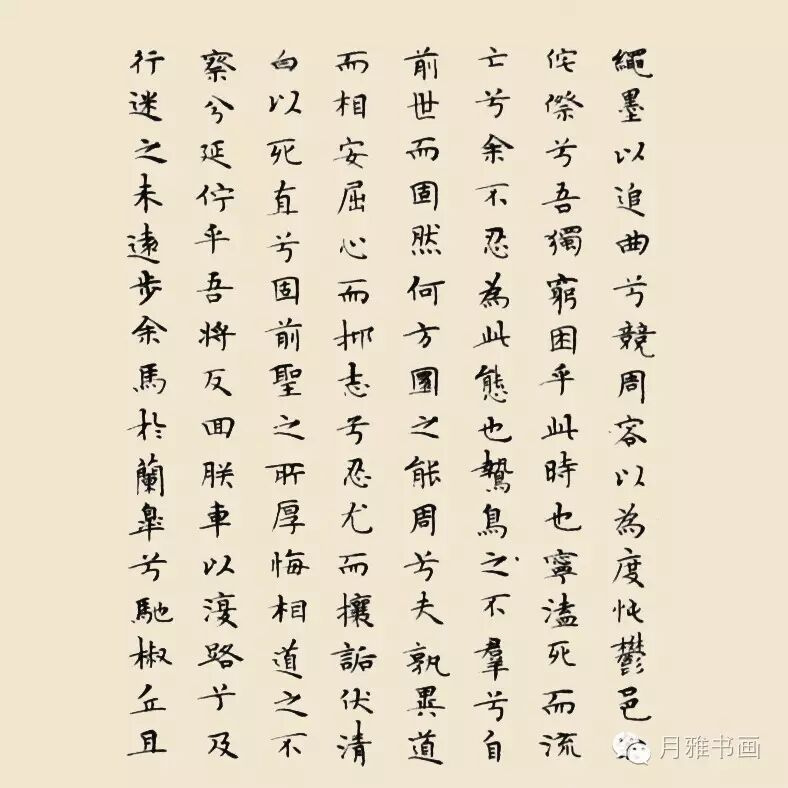 繩墨以追曲兮競周容以為度忳鬱邑
侘傺兮吾獨窮困乎此時也寧溘死而流
亡兮余不忍為此態也鷙鳥之不羣兮自
前世而固然何方圜之能周兮夫孰異道
而相安屈心而抑志兮忍尤而攘詬伏清
白以死直兮固前聖之所厚悔相道之不
察兮延佇乎吾將反回朕車以復路兮及
行迷之未遠步余馬於蘭皋兮馳椒丘且
月雅书画